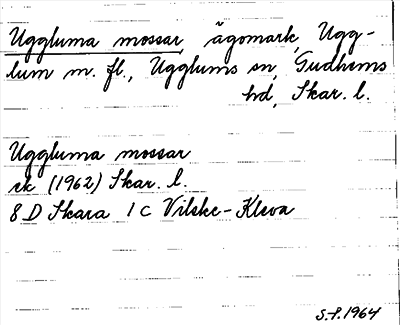 Uggluma mossar, ägomark, Ugg-
lum m. fl., Ugglums sn, Gudhems
hd, Skar. l.
Uggluma mossar
ek (1962) Skar. l.
8 D Skara 1 c Vilske-Kleva
S.F. 1964